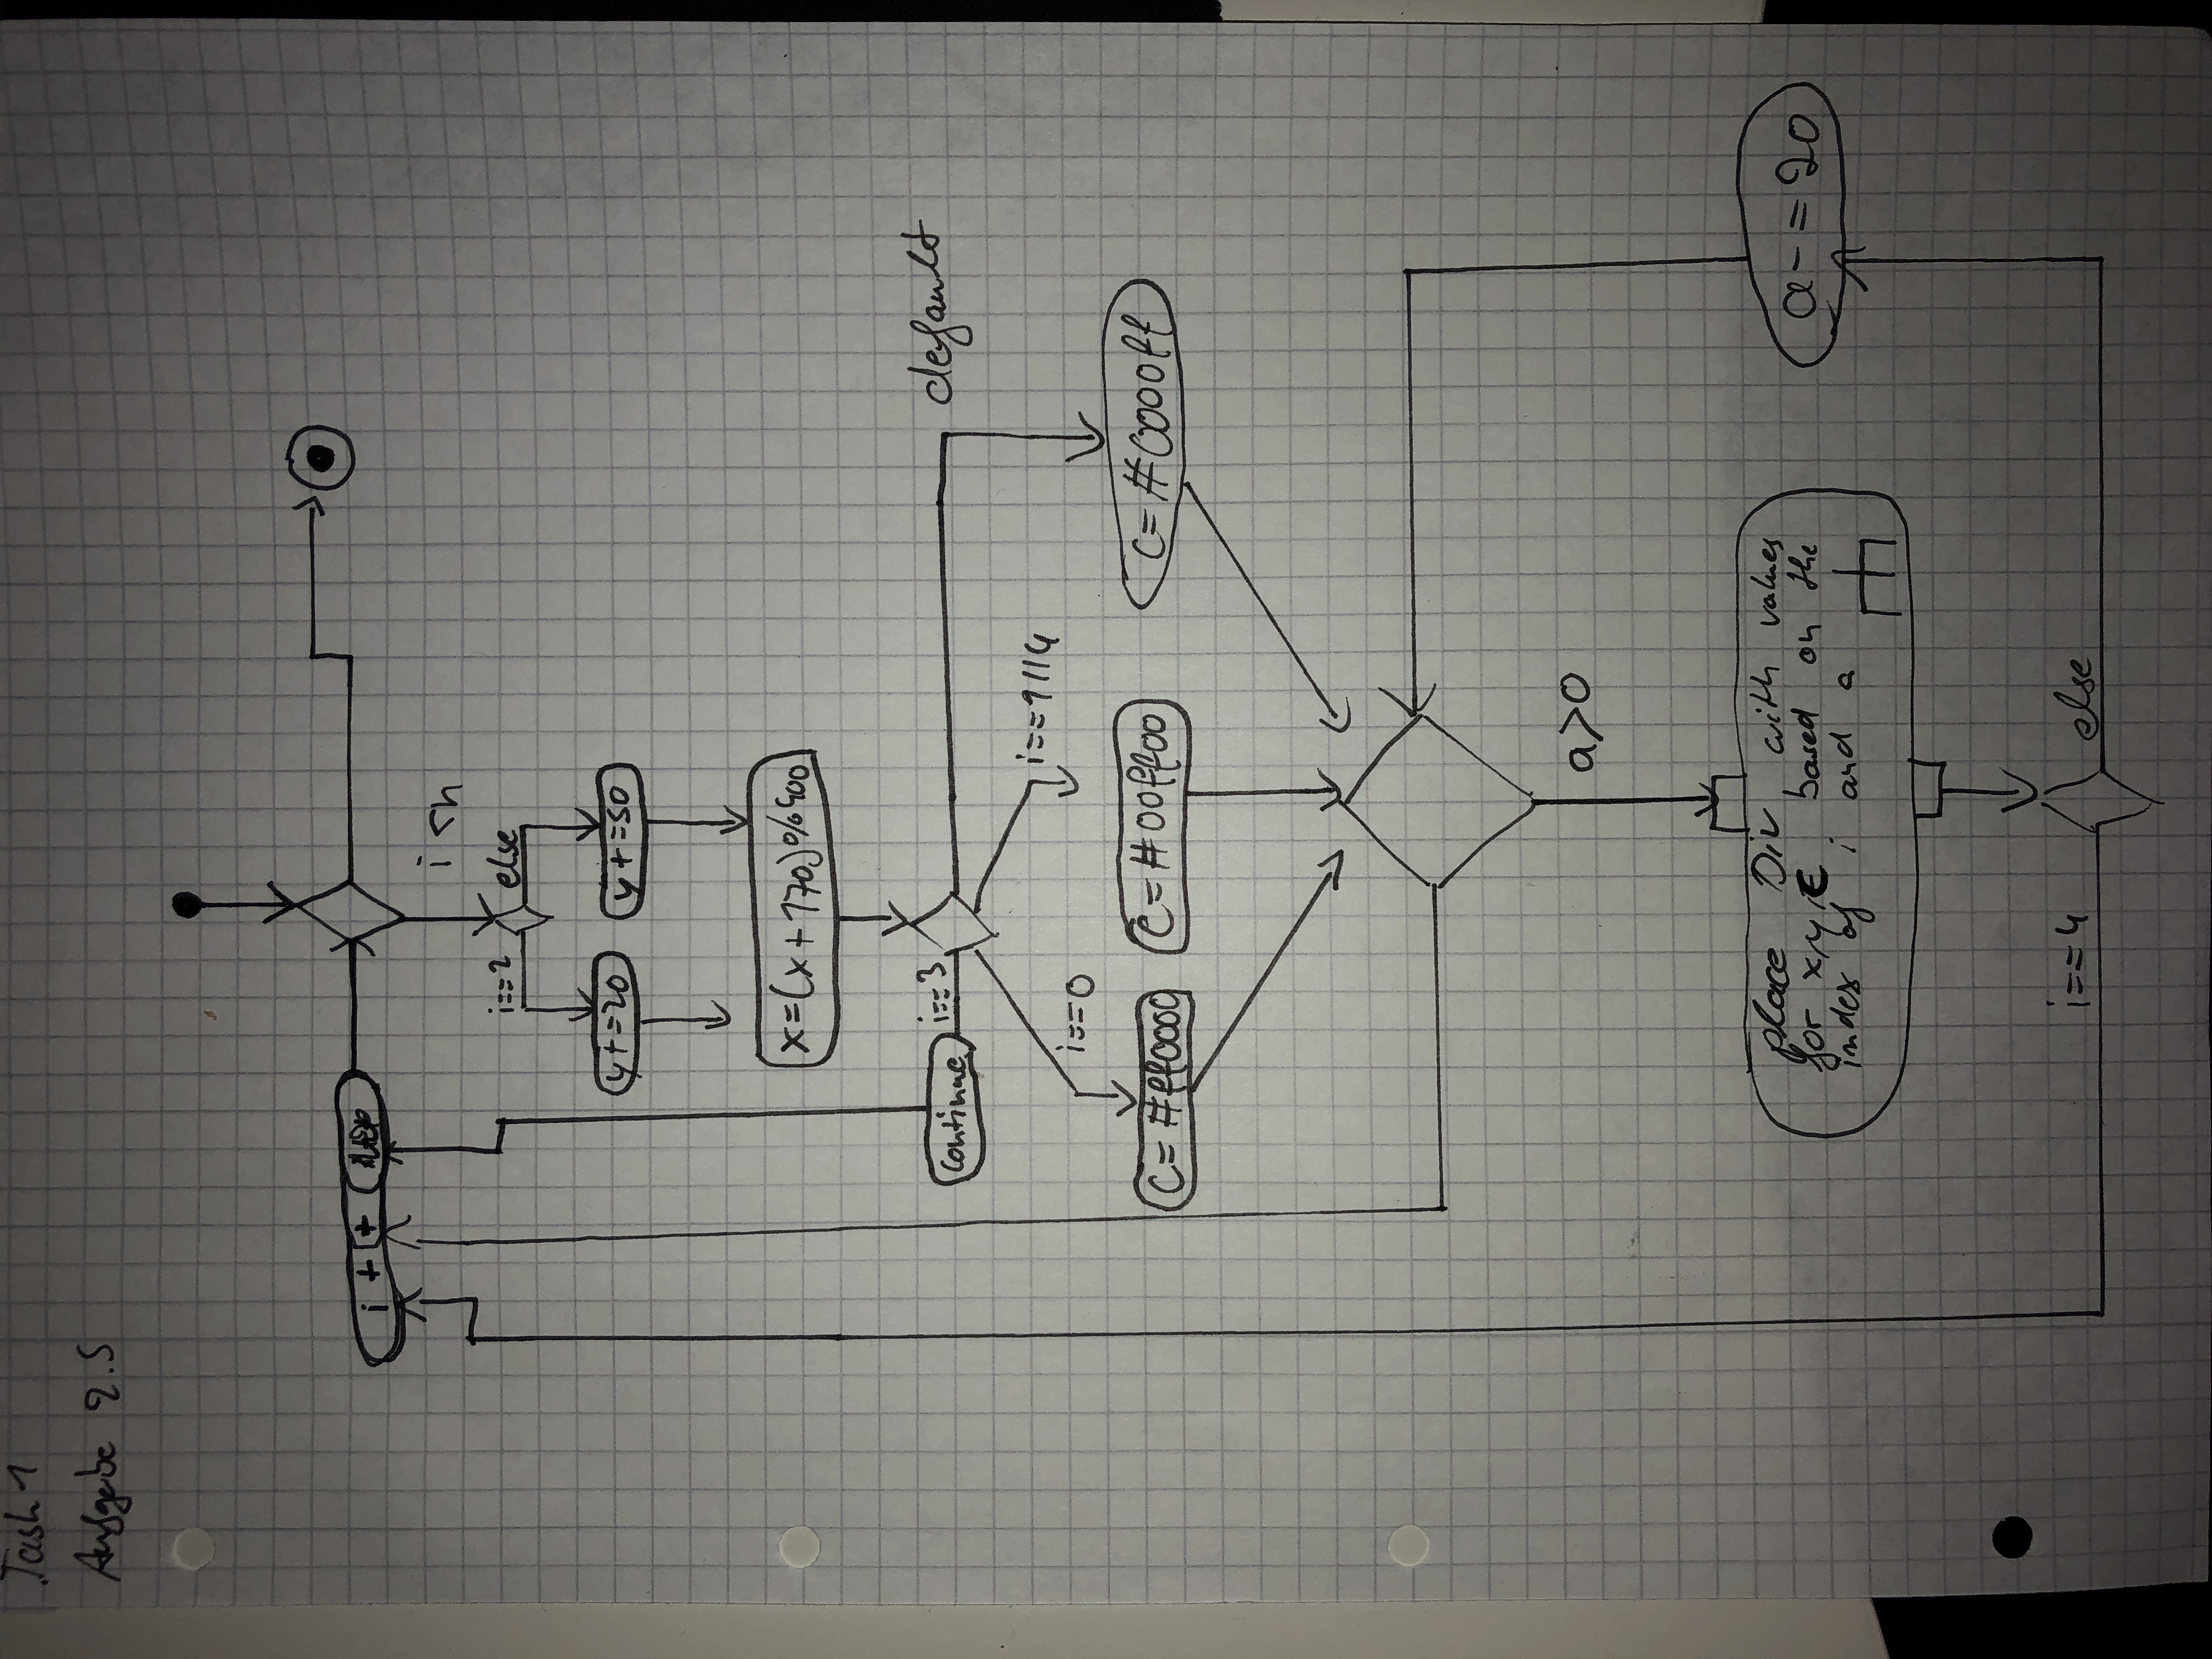 Task 1
Aufgabe 2.5
i++
i<n
i==2 else
y+=20 y+=50
x=(x+170)%400
continue i==3 default
i==0 i==1||4
c=#ff0000 c=#00ff00 c=#0000ff
a>0
place Div with values
for x,y,c based on the
index of i and a
a-=20
i==4 else